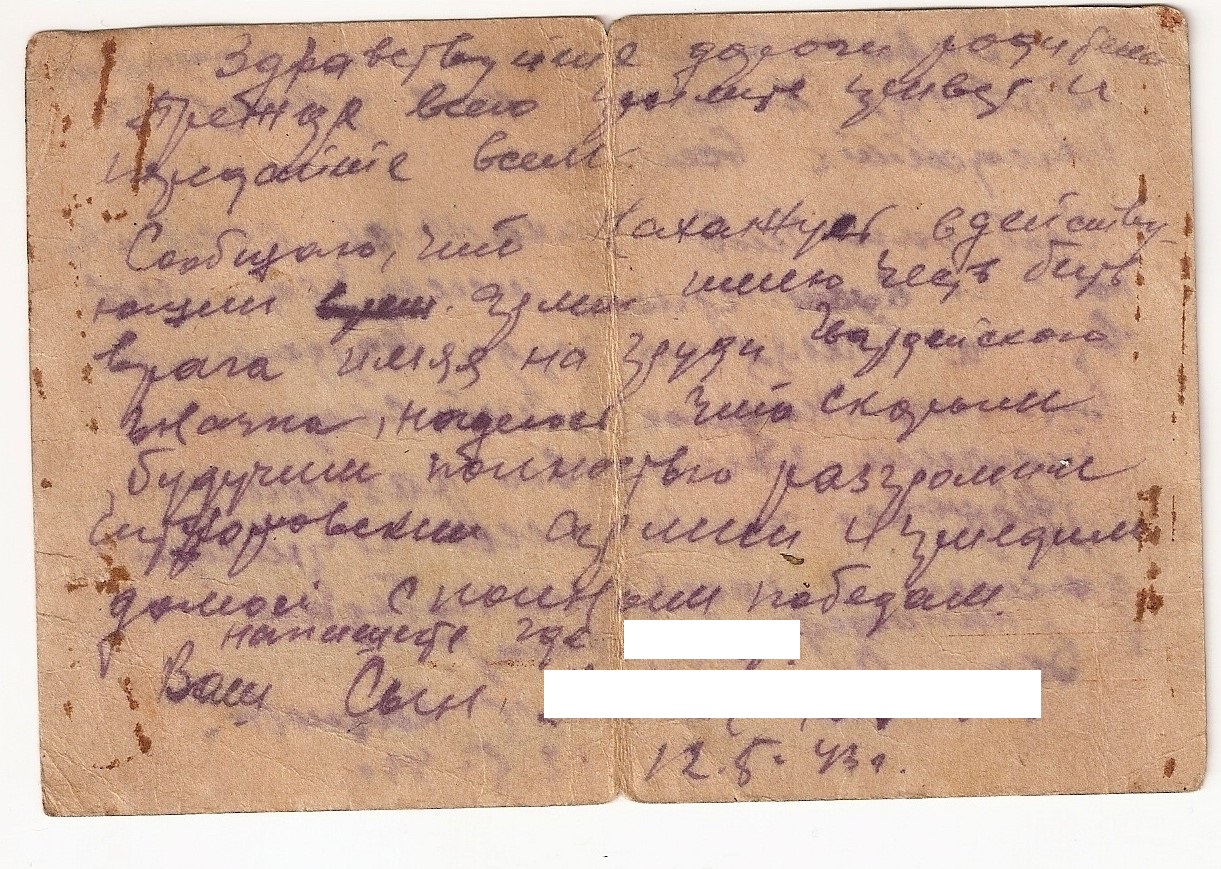 Здравствуйте дороги родители
Прежде всего примите привет и
передайте всем.
Сообщаю, что нахажусь в действу-
ющии арми имею честь бить
врага имея на груди Гвардейского
значка, надеюсь что скорыми
будучими полностью разгромим
гитлоровскии армии и
домой с полными победами.
напишите где
Ваш Сын,
12.5. 43 г.